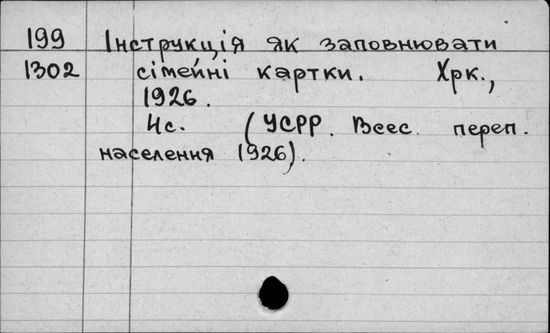 199 Інструкція як заповнювати
1302 сімейні картки. Хрк.,
1926.
4с. (УСРР. Всес. переп.
населення 1926).